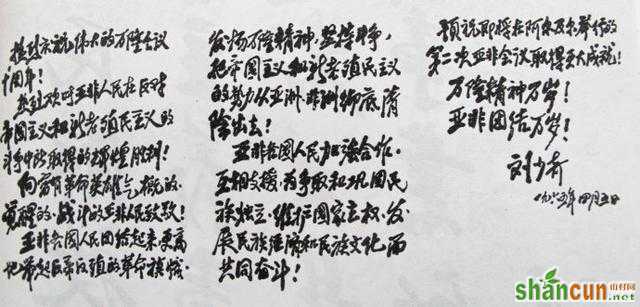 热烈庆祝伟大的万隆会议
十周年!
热烈欢呼亚非人民在反对
帝国主义和新老殖民主义的
斗争中所取得的辉煌胜利!
向富有革命英雄气概的、
觉醒的、战斗的亚非人民致敬!
亚非各国人民团结起来,更高
地举起反帝反殖的革命旗帜,
发扬万隆精神,坚持斗争,
把帝国主义和新老殖民主义
的势力从亚洲、非洲彻底清
除出去!
亚非各国人民加强合作,
互相支援,为争取和巩固民
族独立、维护国家主权、发
展民族经济和民族文化,而
共同奋斗!
预祝即将在阿尔及尔举行的
第二次亚非会议取得更大成就!
万隆精神万岁!
亚非团结万岁!
刘少奇
一九六五年四月五日
shancun 山村网
.net